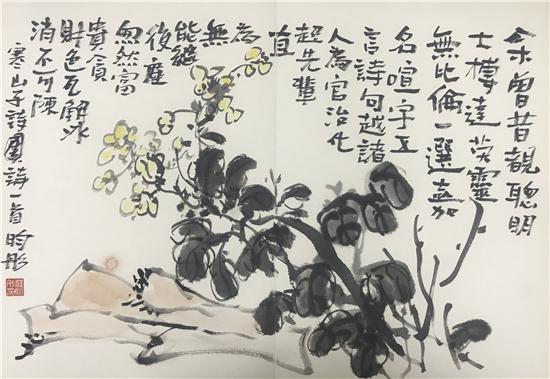 余曾昔觀聰明
士博達英靈
無比倫一選嘉
名喧宇五
言詩句越諸
人為官治化
超先輩
直
為
無
能繼
後塵
忽然富
貴貪
財色瓦解冰
消不可陳
寒山子詩一首